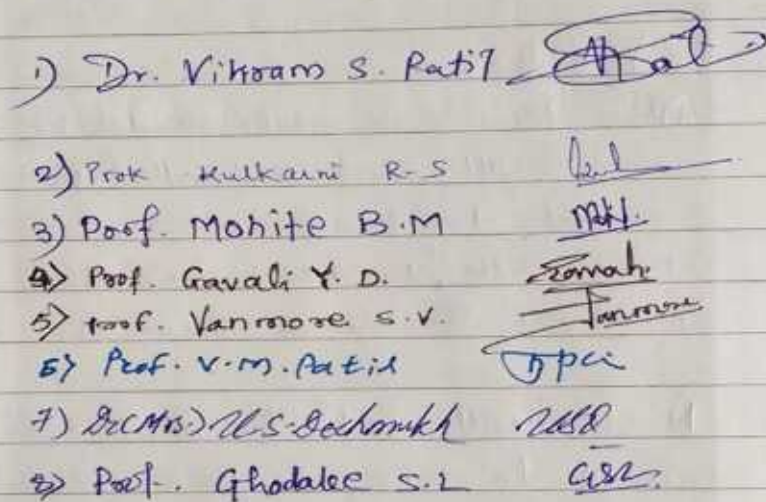 1) Dr. Vikram S. Patil
2) Prof Kulkarni R-S
3) Prof. Mohite B.M
4) Prof. Gavali Y. D.
5) Prof. Vanmore S.V. Vanmore
6) Prof. V.M. Patil
7) Dr(Mrs.) U.S. Deshmukh USD
8) Prof. Ghodake S.L GSL